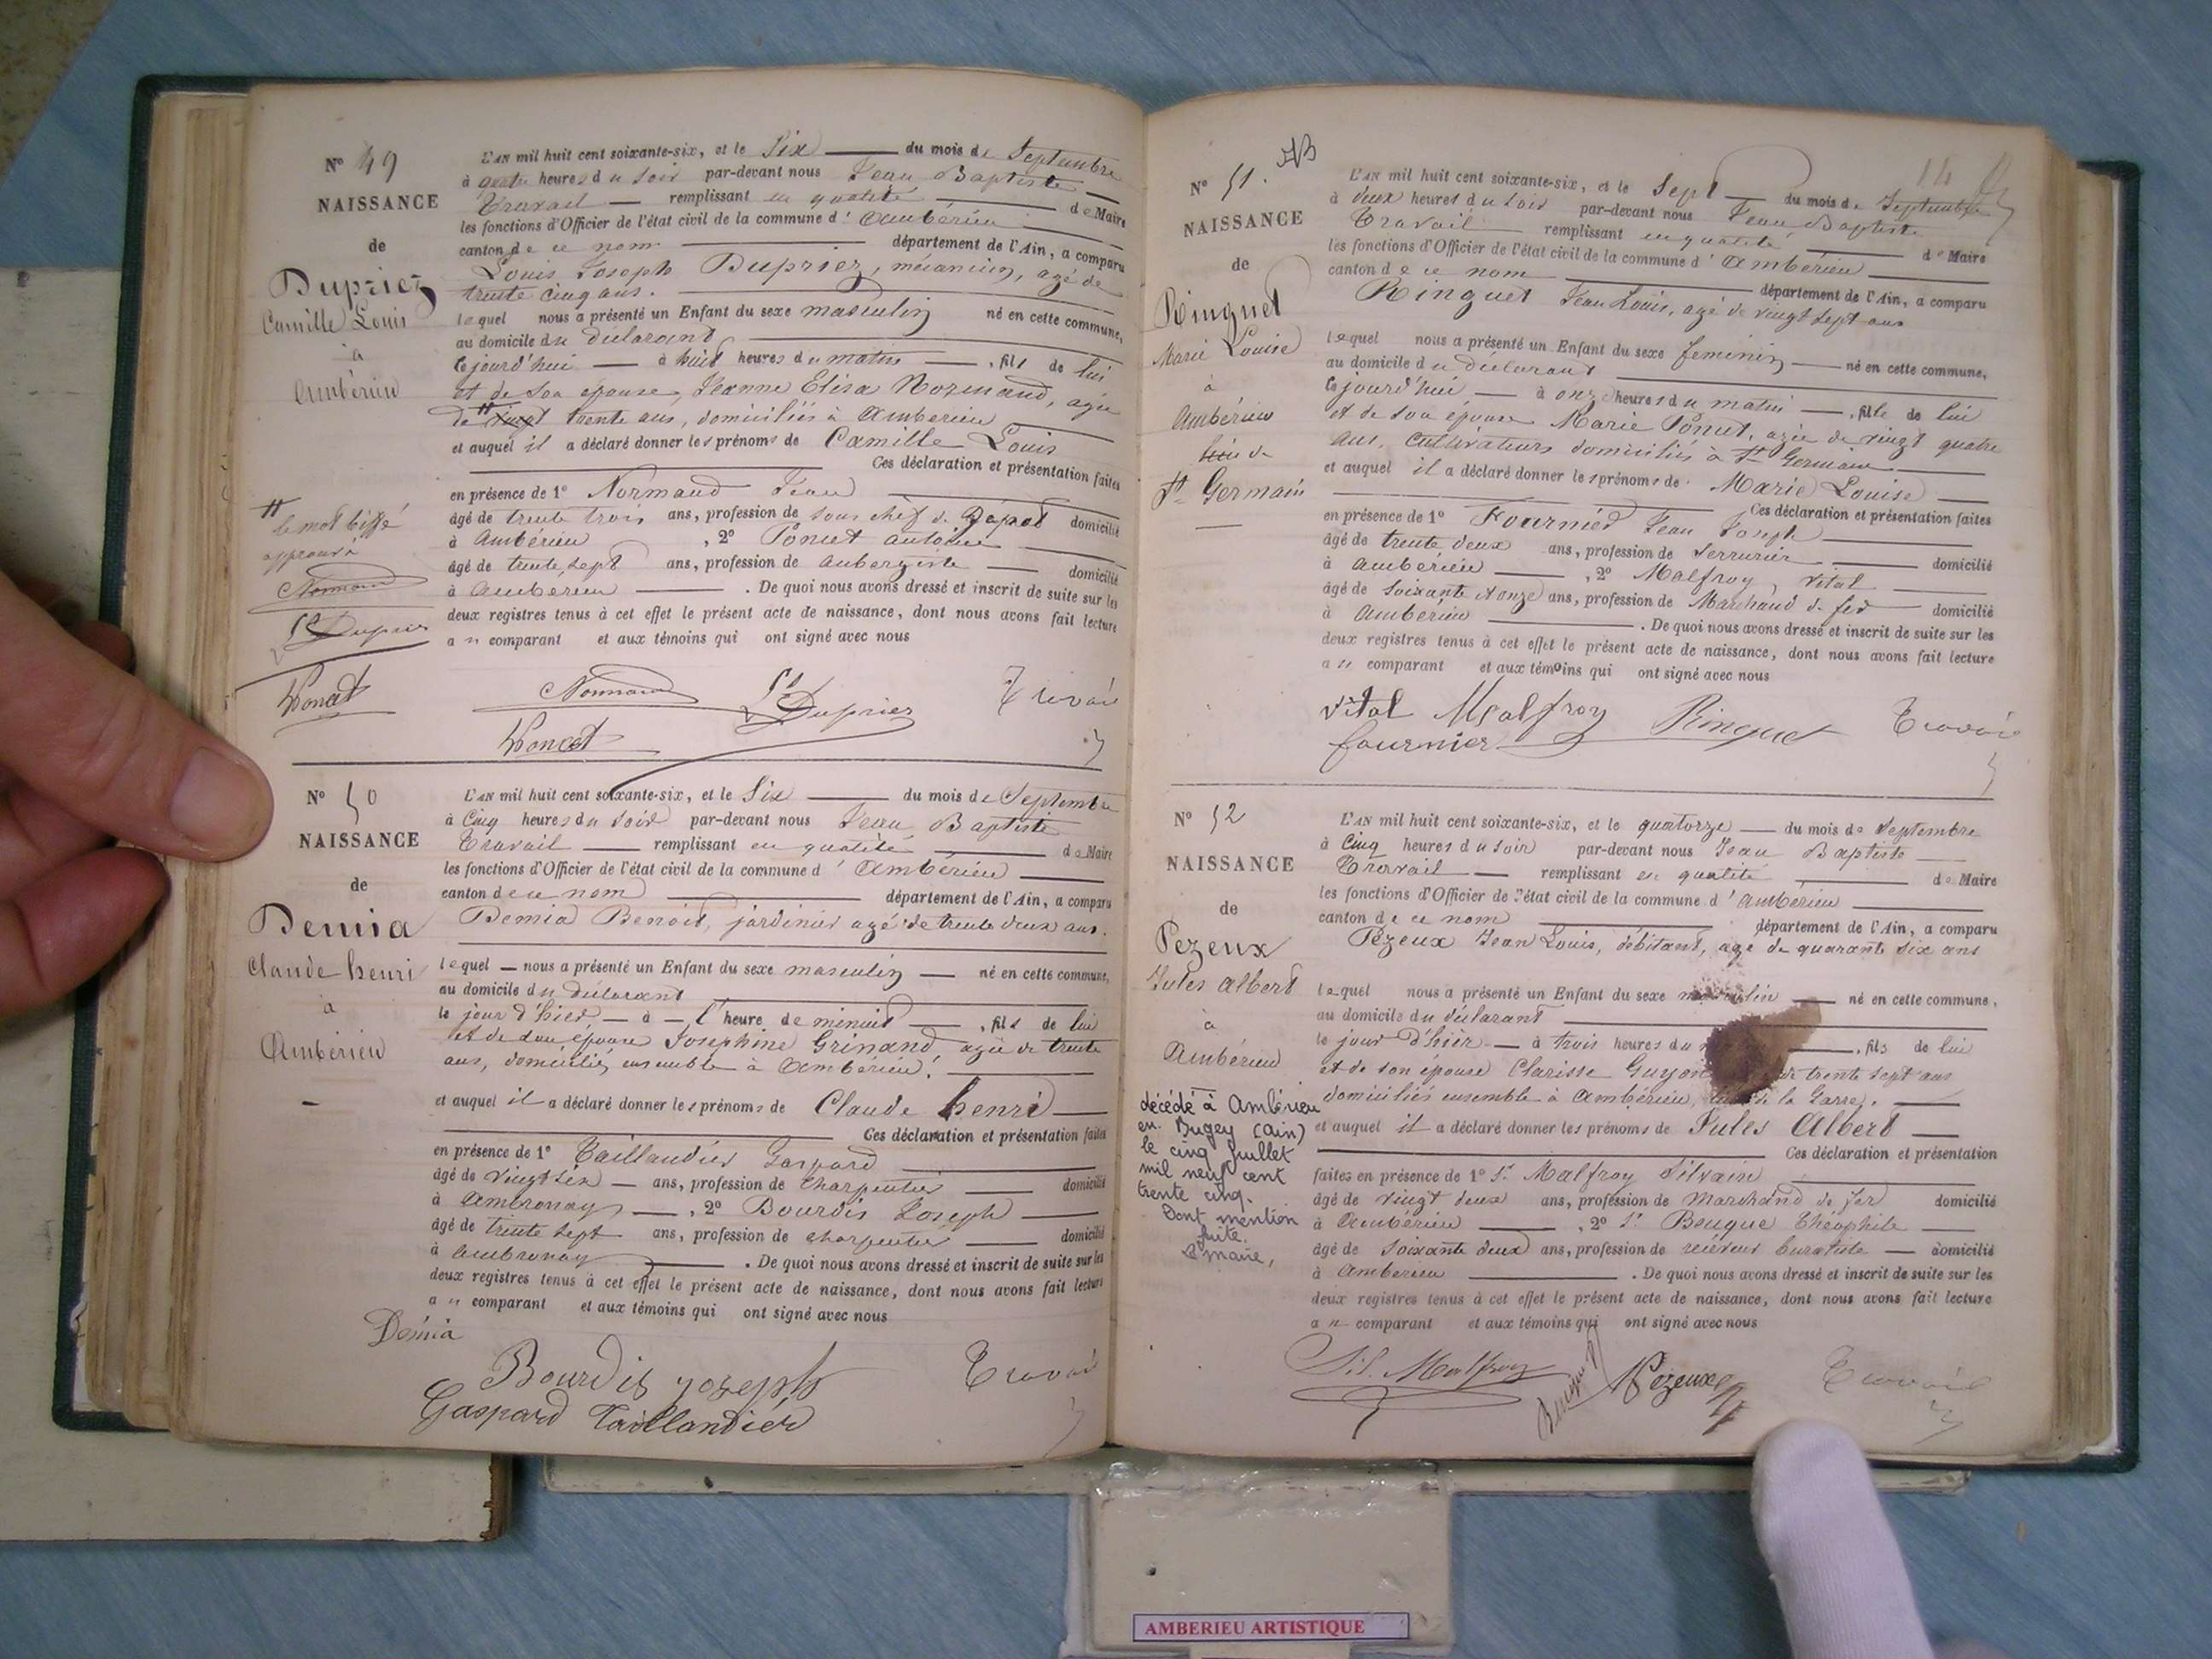 N° 49
NAISSANCE
de
Dupriez
Camille Louis
à
Ambérieu
L'AN mil huit cent soixante-six, et le Six du mois de Septembre
à quatre heures du soir par-devant nous Jean Baptiste
Travail remplissant en qualité de Maire
les fonctions d'Officier de l'état civil de la commune d'Ambérieu
canton de ce nom département de l'Ain, a comparu
Louis Joseph Dupriez, mécanicien, agé de
trente cinq ans.
lequel nous a présenté un Enfant du sexe masculin né en cette commune,
au domicile du déclarant
cejourd'hui à huit heures du matin, fils de lui
et de son épouse Jeanne Elisa Normand, agée
de vingt trente ans, domiciliés à Ambérieu
et auquel il a déclaré donner les prénoms de Camille Louis
Ces déclaration et présentation faites
en présence de 1° Normand Jean
âgé de trente trois ans, profession de sous chef de Dépot domicilié
à Ambérieu, 2° Poncet antoine
âgé de trente sept ans, profession de aubergiste domicilié
à Ambérieu. De quoi nous avons dressé et inscrit de suite sur les
deux registres tenus à cet effet le présent acte de naissance, dont nous avons fait lecture
au comparant et aux témoins qui ont signé avec nous
le mot biffé
approuvé
Normand
Ls Dupriez
Poncet
Normand Ls Dupriez Travail
Poncet
N° 50
NAISSANCE
de
Demia
Claude henri
à
Ambérieu
L'AN mil huit cent soixante-six, et le Six du mois de Septembre
à Cinq heures du soir par-devant nous Jean Baptiste
Travail remplissant en qualité de Maire
les fonctions d'Officier de l'état civil de la commune d'Ambérieu
canton de ce nom département de l'Ain, a comparu
Demia Benoit, jardinier agé de trente deux ans.
lequel nous a présenté un Enfant du sexe masculin né en cette commune,
au domicile du déclarant
le jour d'hier à l'heure de minuit, fils de lui
et de son épouse Josephine Grinand agée de trente
ans, domiciliés ensemble à Ambérieu.
et auquel il a déclaré donner les prénoms de Claude henri
Ces déclaration et présentation faites
en présence de 1° Taillandier Gaspard
âgé de vingt six ans, profession de Charpentier domicilié
à Ambronay, 2° Bourdis Joseph
âgé de trente sept ans, profession de charpentier domicilié
à Ambronay. De quoi nous avons dressé et inscrit de suite sur les
deux registres tenus à cet effet le présent acte de naissance, dont nous avons fait lecture
au comparant et aux témoins qui ont signé avec nous
Démia
Bourdis joseph Travail
Gaspard Taillandier
14
N° 51.
NAISSANCE
de
Ringuet
Marie Louise
à
Ambérieu
lieu de
St Germain
L'AN mil huit cent soixante-six, et le Sept du mois de Septembre
à deux heures du soir par-devant nous Jean Baptiste
Travail remplissant en qualité de Maire
les fonctions d'Officier de l'état civil de la commune d'Ambérieu
canton de ce nom département de l'Ain, a comparu
Ringuet Jean Louis, agé de vingt sept ans
lequel nous a présenté un Enfant du sexe feminin né en cette commune,
au domicile du déclarant
cejourd'hui à onze heures du matin, fille de lui
et de son épouse Marie Ponut, agée de vingt quatre
ans, cultivateurs domiciliés à St Germain
et auquel il a déclaré donner les prénoms de Marie Louise
Ces déclaration et présentation faites
en présence de 1° Fournier Jean Joseph
âgé de trente deux ans, profession de Serrurier domicilié
à Ambérieu, 2° Malfroy, Vital
âgé de soixante et onze ans, profession de Marchand de fer domicilié
à Ambérieu. De quoi nous avons dressé et inscrit de suite sur les
deux registres tenus à cet effet le présent acte de naissance, dont nous avons fait lecture
au comparant et aux témoins qui ont signé avec nous
Vital Malfroy Ringuet Travail
fournier
N° 52
NAISSANCE
de
Pezeux
Jules Albert
à
Ambérieu
décédé à Ambérieu
en Bugey (Ain)
le cinq Juillet
mil neuf cent
trente cinq.
Dont mention
faite.
le maire,
L'AN mil huit cent soixante-six, et le quatorze du mois de Septembre
à Cinq heures du soir par-devant nous Jean Baptiste
Travail remplissant en qualité de Maire
les fonctions d'Officier de l'état civil de la commune d'Ambérieu
canton de ce nom département de l'Ain, a comparu
Pezeux Jean Louis, débitant, agé de quarante six ans
lequel nous a présenté un Enfant du sexe masculin né en cette commune,
au domicile du déclarant
le jour d'hier à trois heures du, fils de lui
et de son épouse Clarisse Guyon de trente sept ans
domiciliés ensemble à Ambérieu, de la Garre.
et auquel il a déclaré donner les prénoms de Jules Albert
Ces déclaration et présentation
faites en présence de 1° Sr Malfroy Silvain
âgé de vingt deux ans, profession de marchand de fer domicilié
à Ambérieu, 2° Sr Beuque Théophile
âgé de soixante deux ans, profession de receveur buraliste domicilié
à Ambérieu. De quoi nous avons dressé et inscrit de suite sur les
deux registres tenus à cet effet le présent acte de naissance, dont nous avons fait lecture
au comparant et aux témoins qui ont signé avec nous
Sil. Malfroy Beuque Pezeux Travail
AMBERIEU ARTISTIQUE